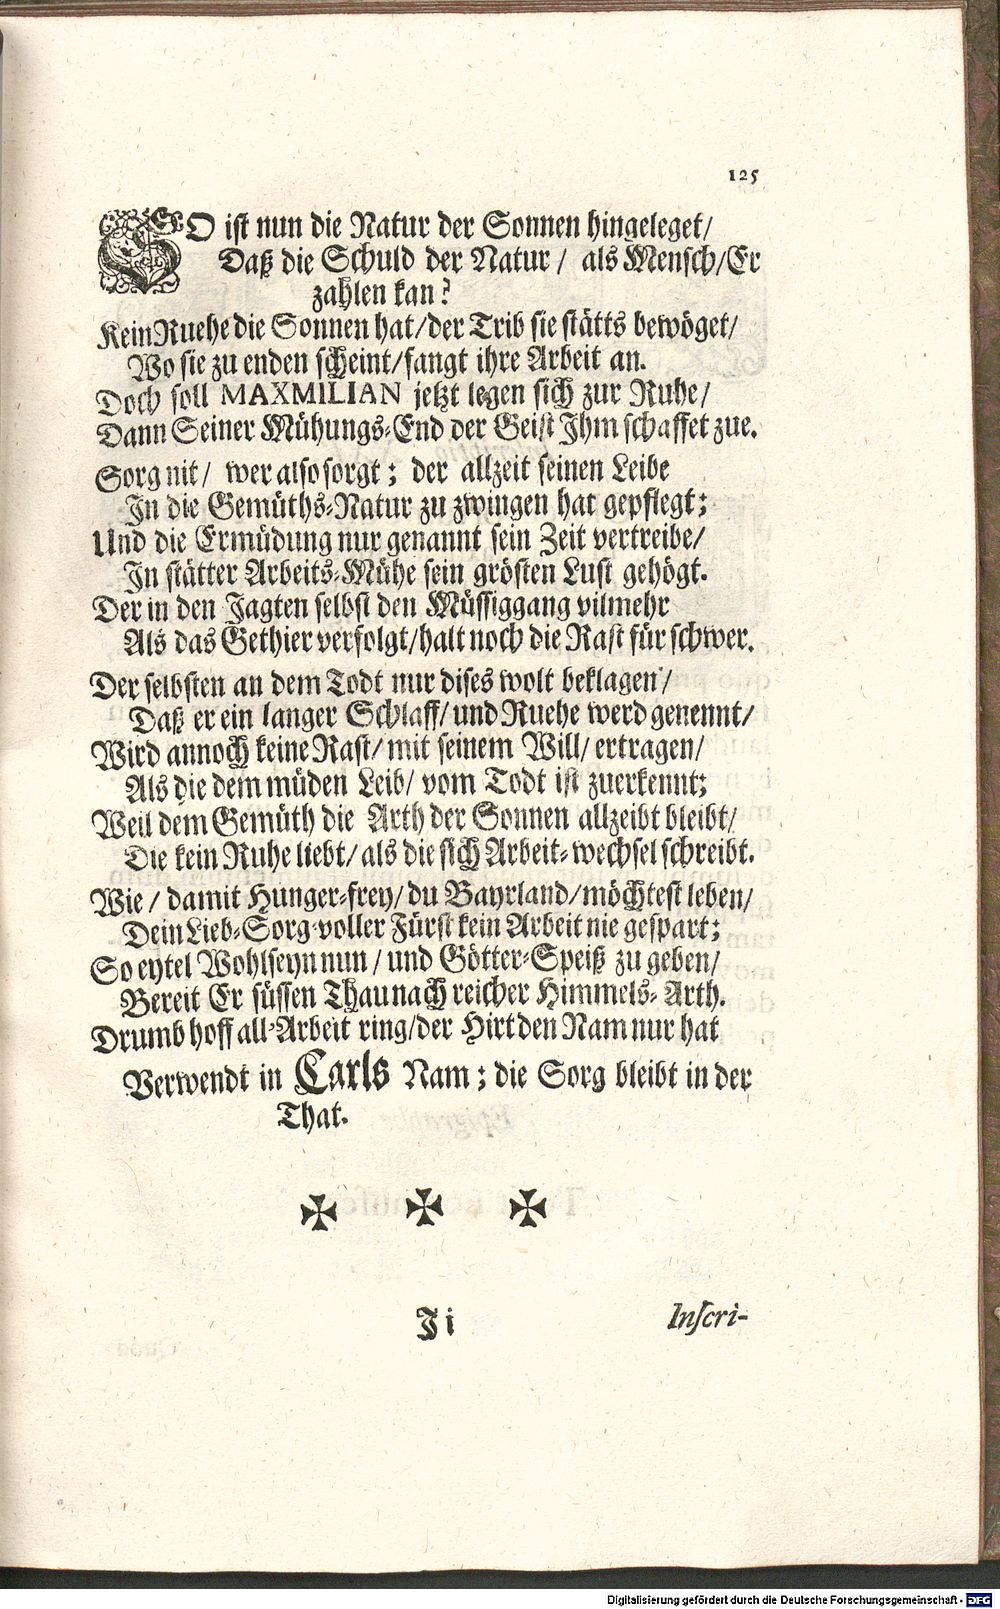 125
SO ist nun die Natur der Sonnen hingeleget/
Daß die Schuld der Natur / als Mensch/Er
zahlen kan?
Kein Ruehe die Sonnen hat/der Trib sie stätts bewöget/
Wo sie zu enden scheint/fangt ihre Arbeit an.
Doch soll MAXMILIAN jetzt legen sich zur Ruhe/
Dann Seiner Mühungs-End der Geist Ihm schaffet zue.
Sorg nit / wer also sorgt; der allzeit seinen Leibe
In die Gemüths-Natur zu zwingen hat gepflegt;
Und die Ermüdung nur genannt sein Zeit vertreibe/
In stätter Arbeits-Mühe sein grösten Lust gehögt.
Der in den Jagten selbst den Müssiggang vilmehr
Als das Gethier verfolgt/halt noch die Rast für schwer.
Der selbsten an dem Todt nur dises wolt beklagen/
Daß er ein langer Schlaff/und Ruehe werd genennt/
Wird annoch keine Rast/ mit seinem Will/ ertragen/
Als die dem müden Leib/ vom Todt ist zuerkennt;
Weil dem Gemüth die Arth der Sonnen allzeibt bleibt/
Die kein Ruhe liebt/ als die sich Arbeit-wechsel schreibt.
Wie / damit Hunger-frey/du Bayrland/möchtest leben/
Dein Lieb-Sorg-voller Fürst kein Arbeit nie gespart;
So eytel Wohlseyn nun / und Götter-Speiß zu geben/
Bereit Er süssen Thau nach reicher Himmels-Arth.
Drumb hoff all-Arbeit ring/der Hirt den Nam nur hat
Verwendt in Carls Nam; die Sorg bleibt in der
That.
Ji
Inscri-
Digitalisierung gefördert durch die Deutsche Forschungsgemeinschaft - DFG